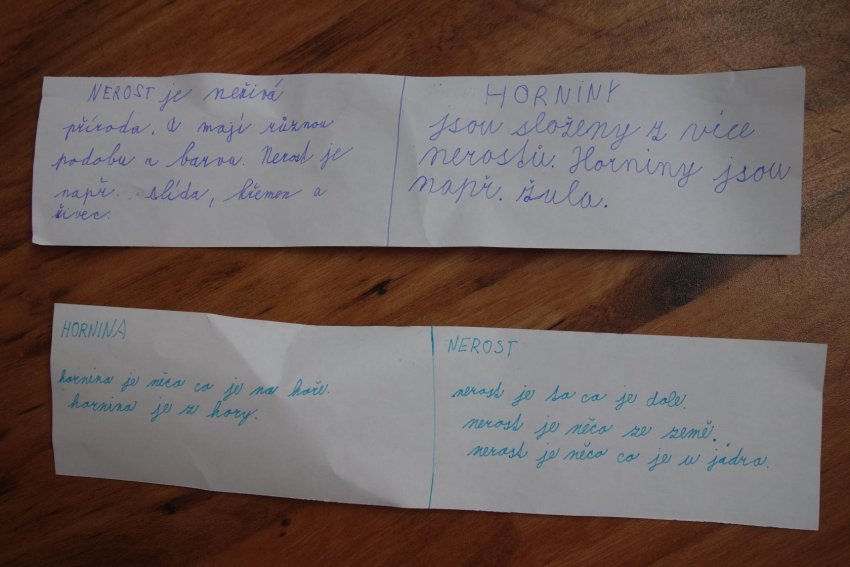 NEROST je neživá
příroda. I mají různou
podobu a barvu. Nerost je
např. slída, křemen a
živec.
HORNINY
jsou složeny z více
nerostů. Horniny jsou
např. žula.
HORNINA
hornina je něco co je na hoře.
hornina je z hory.
NEROST
nerost je to co je dole.
nerost je něco ze země.
nerost je něco co je u jádra.